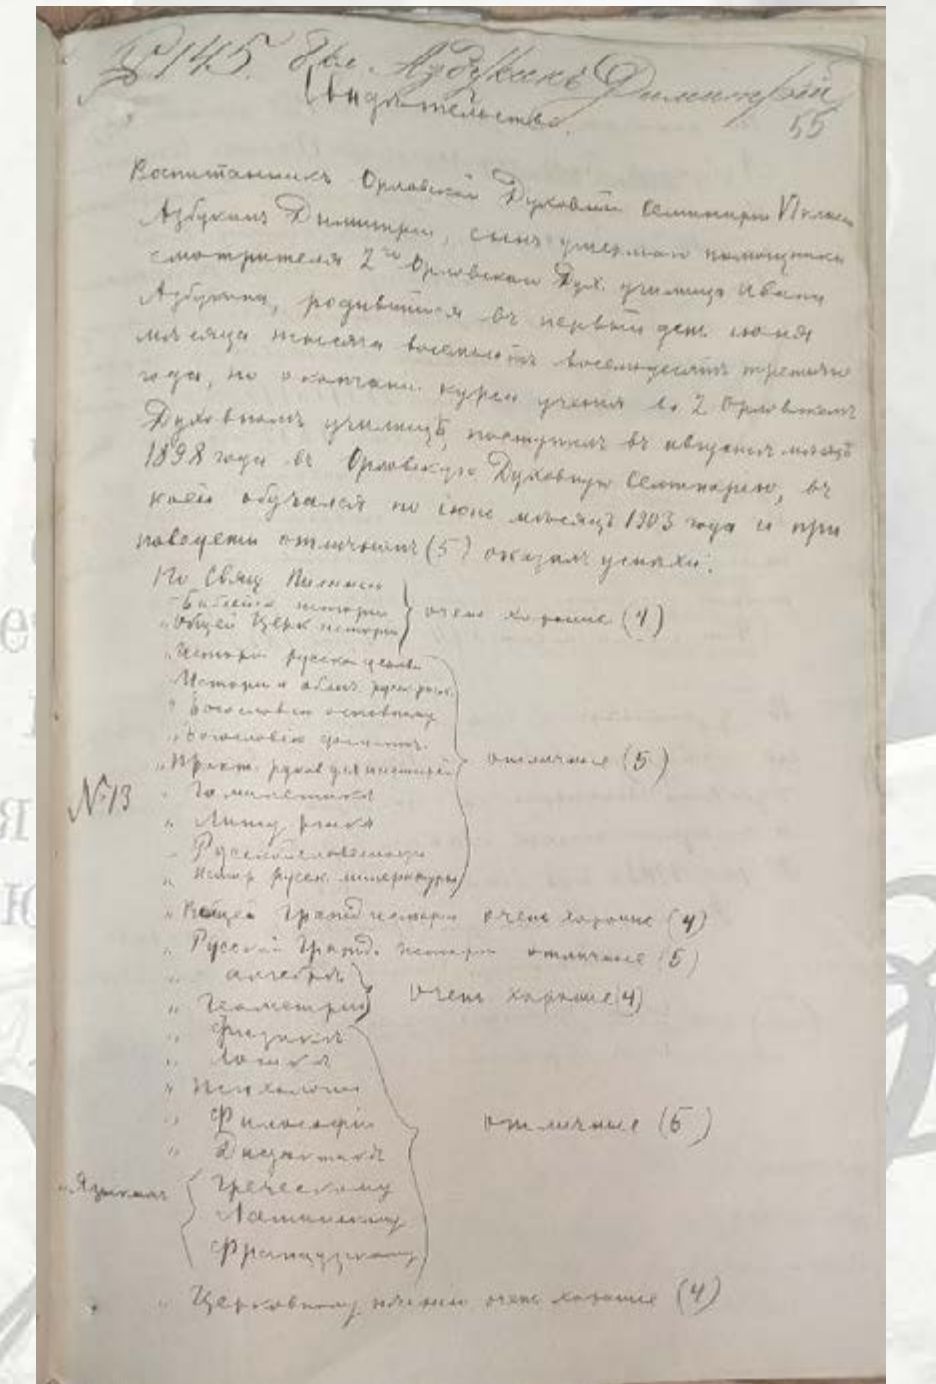 № 145. Азбукинъ Димитрій
Свидѣтельство.
55
Воспитанникъ Орловской Духовной Семинаріи VI класса
Азбукинъ Димитрій, сынъ умершаго помощника
смотрителя 2го Орловскаго Дух. училища Ивана
Азбукина, родившійся въ первый день іюня
мѣсяца тысяча восемьсотъ восемьдесятъ третьяго
года, по окончаніи курса ученія во 2 Орловскомъ
Духовномъ училищѣ, поступилъ въ августѣ мѣсяцѣ
1898 года въ Орловскую Духовную Семинарію, въ
коей обучался по іюнь мѣсяцъ 1903 года и при
поведеніи отличномъ (5) оказалъ успѣхи:
По Свящ. Писанію
" Библейск. исторіи
" Общей Церк. исторіи
очень хорошіе (4)
" Исторіи русской церкви
" Исторіи и облич. русск. раск.
" Богословію основному
" Богословію догматич.
" Практ. руков. для пастырей
" Гомилетикѣ
№ 13
" Литургикѣ
" Русской словесности
" Истор. русск. литературы
отличные (5)
" Общей гражд. исторіи очень хорошіе (4)
" Русской гражд. исторіи отличные (5)
" алгебрѣ
" Геометріи
очень хорошіе (4)
" Физикѣ
" Логикѣ
" Психологіи
" Философіи
" Дидактикѣ
отличные (5)
" Языкамъ
Греческому
Латинскому
Французскому
" Церковному пѣнію очень хорошіе (4)